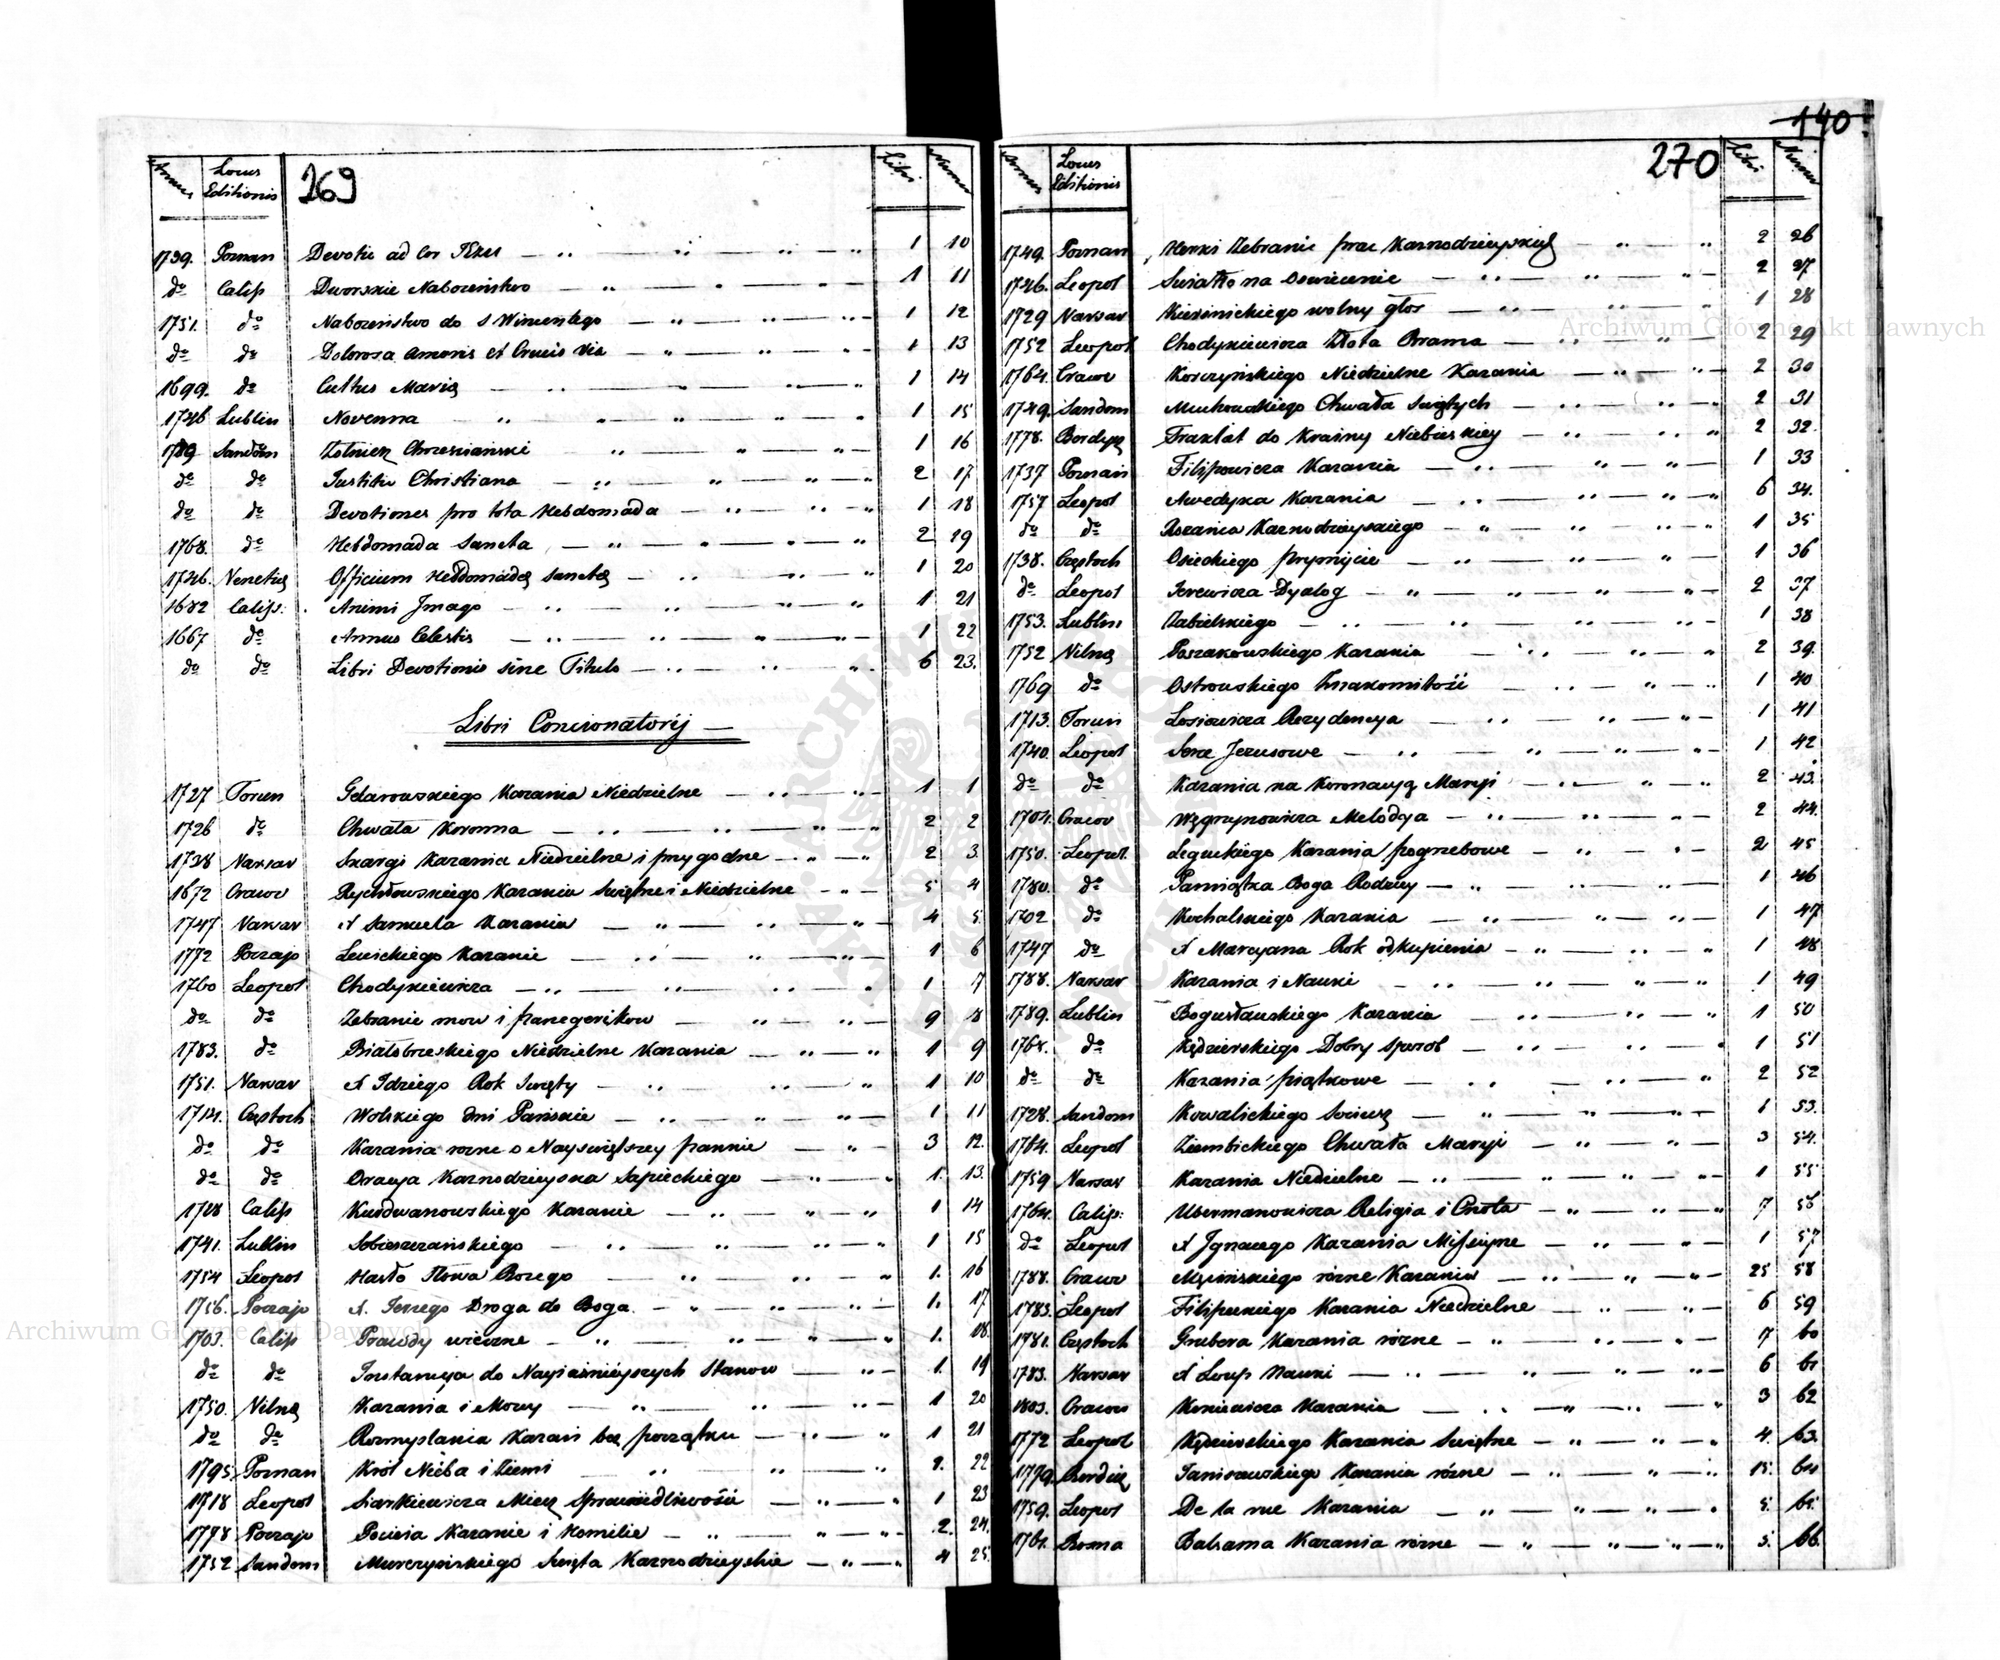 140
269
Annus Locus Editionis Libri Numer
1739. Poznan Devotio ad Cor Jesu 1 10
do Calis Dworskie Nabozeństwo 1 11
1751. do Nabozeństwo do S Wincentego 1 12
do do Dolorosa Amoris et Crucis via 1 13
1699. do Cultus Mariæ 1 14
1746 Lublin Novenna 1 15
1789 Sandom Zołnierz Chrzesciański 1 16
do do Justitia Christiana 2 17
do do Devotiones pro tota Hebdomada 1 18
1768. do Hebdomada Sancta 2 19
1746. Venetiæ Officium Hebdomadæ Sanctæ 1 20
1682 Calis: Animi Imago 1 21
1667 do Annus Celestis 1 22
do do Libri Devotionis sine Titulo 6 23.
Libri Concionatorij
1727 Torun Gdarowskiego Kazania Niedzielne 1 1
1726 do Chwała Koronna 2 2
1738 Varsav Skargi Kazania Niedzielne i przygodne 2 3
1672 Cracov Rychłowskiego Kazania Swiętne i Niedzielne 5 4
1747 Varsav A Samuela Kazania 4 5
1772 Poczajo Lewickiego Kazanie 1 6
1760 Leopol Chodykiewicza 1 7
do do Zebranie mow i panegerikow 9 8
1783. do Białobrzeskiego Niedzielne Kazania 1 9
1751. Varsav A Idziego Rok Swięty 1 10
1714. Częstoch Wolskiego dni Pańskie 1 11
do do Kazania rozne o Nayswiętszey pannie 3 12.
do do Oracya Kaznodzieyska Sapieckiego 1. 13.
1728 Calis Kurdwanowskiego Kazanie 1 14
1741. Lublin Sobieszczańskiego 1 15
1754 Leopol Hasło Słowa Bozego 1. 16
1756. Poczajo A. Jerzego Droga do Boga 1. 17
1703. Calis Prawdy wieczne 1. 18.
do do Instancya do Nayiaśnieyszych Stanow 1. 19
1750. Vilnæ Kazania i Mowy 1 20
do do Rozmyslania Kazań bez początku 1 21
1795. Poznan Król Nieba i Ziemi 1. 22
1718 Leopol Siarkiewicza Miecz Sprawiedliwości 1 23
1778 Poczajo Pocieia Kazanie i Homilie 2. 24.
1752 Sandom Murczyńskiego Swięta Kaznodzieyskie 4 25.
270
Annus Locus Editionis Libri Numer
1749. Poznan Herki Zebranie prac Kaznodzieyskich 2 26
1746. Leopol Swiatło na Oswiecenie 2 27
1729 Varsav Kiesinickiego wolny głos 1 28
1752 Leopol Chodykiewicza Złota Brama 2 29
1764. Cracov Korczyńskiego Niedzielne Kazania 2 30
1749. Sandom Muchowskiego Chwała Swiętych 2 31
1778. Berdyc Traktat do Krainy Niebieskiey 2 32.
1737 Poznań Filipowicza Kazania 1 33
1757 Leopol Awedyka Kazania 6 34.
do do Kazania Kaznodzieyskiego 1 35
1738. Częstoch Osieckiego przymięcie 1 36
do Leopol Jerewicza Dyalog 2 37
1753. Lublin Zabielskiego 1 38
1752 Vilnæ Poszakowskiego Kazania 2 39.
1769 do Ostrowskiego Znakomitość 1 40
1713. Toruń Losiewicza Rezydencya 1 41
1740. Leopol Serce Jezusowe 1 42
do do Kazania na Koronacyą Maryi 2 43.
1704. Cracov Węgrzynowicza Melodya 2 44.
1750. Leopol. Leguckiego Kazania pogrzebowe 2 45
1780. do Pamiątka Boga Rodzicy 1 46
1702 do Kochalskiego Kazania 1 47
1747 do A Marcyana Rok odkupienia 1 48
1788. Varsav Kazania i Nauki 1 49
1789. Lublin Bogusławskiego Kazania 1 50
1768. do Kędzierskiego Dobry Sposob 1 51
do do Kazania piątkowe 2 52
1728. Sandom Kowalickiego 1 53.
1764. Leopol Ziembickiego Chwała Maryi 3 54.
1759 Varsav Kazania Niedzielne 1 55
1764. Calis: Ubermanowicza Religia i Cnota 7 56
do Leopol A Ignacego Kazania Missyine 1 57
1788. Cracov Męcińskiego rózne Kazania 25 58
1783. Leopol Filipeckiego Kazania Niedzielne 6 59
1781. Częstoch Grubera Kazania rózne 7 60
1783. Varsav A Loup Nauki 6 61
1803. Cracov Koniewicza Kazania 3 62
1772 Leopol Kędzierskiego Kazania Swiętne 4. 63.
1779. Berdic Janiszewskiego Kazania rózne 15. 64
1759. Leopol De la rue Kazania 5. 65.
1761. Roma Balsama Kazania rózne 5. 66.
Archiwum Główne Akt Dawnych
Archiwum Główne Akt Dawnych